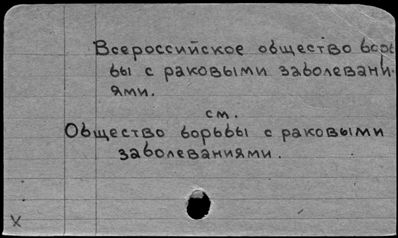 Всероссийское общество борь
бы с раковыми заболевани-
ями.
см.
Общество борьбы с раковыми
заболеваниями.
X